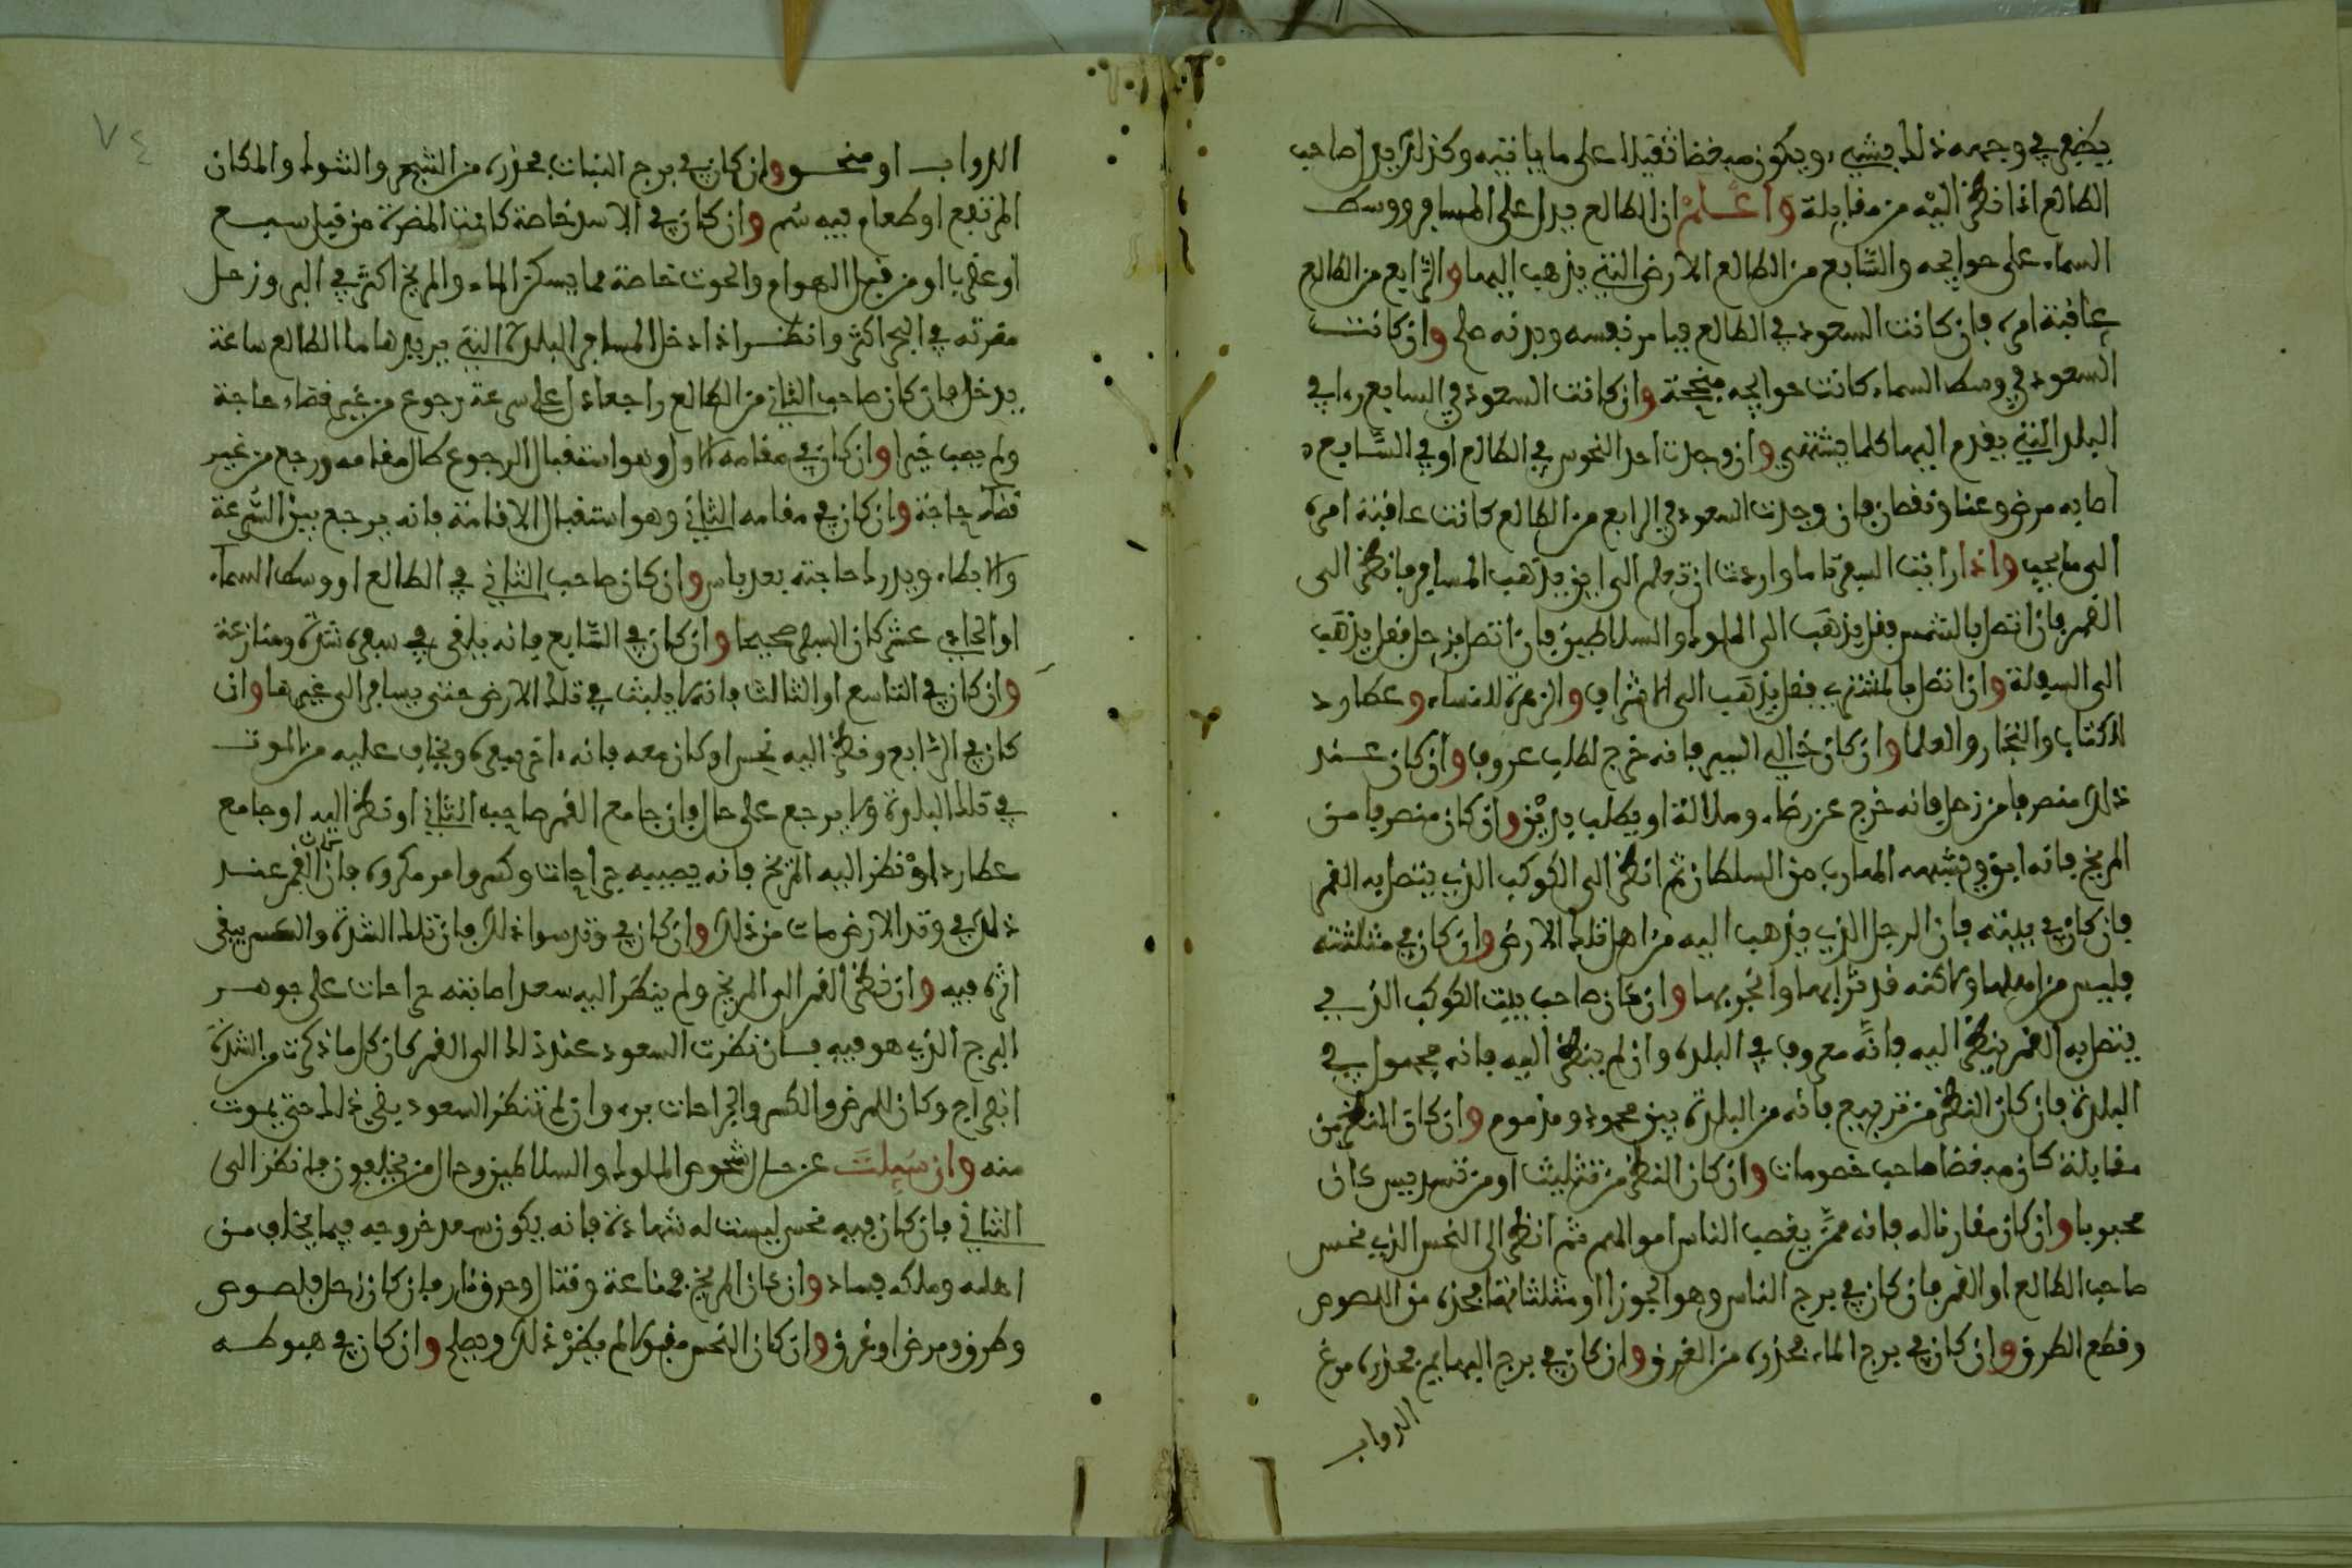 يضع في وجهه ذلك بشيء ويكون مبغضا ثقيلا على ما ياتيه وكذلك يدل صاحب
الطالع اذا نظر اليه من مقابلة واعلم ان الطالع يدل على المسافر ووسط
السماء على حوايجه والسابع من الطالع الارض التي يذهب اليها والرابع من الطالع
عاقبة امره فان كانت السعود في الطالع فيا من نفسه وبدنه صلح وان كانت
السعود في وسط السماء كانت حوايجه منجحة وان كانت السعود في السابع راى في
البلد التي يقدم اليها كلما يشتهي وان وجدت احد النحوس في الطالع او في السابع
اصابه مرض وعنا ونقصان فان وجدت السعود في الرابع من الطالع كانت عاقبة امره
الى ما يحب واذا رايت السفر تاما واردت ان تعلم الى اين يذهب المسافر فانظر الى
القمر فان اتصل بالشمس فقل يذهب الى الملوك والسلاطين فان اتصل بزحل فقل يذهب
الى السفلة وان اتصل بالمشتري فقل يذهب الى الاشراف والزهرة للنساء وعطارد
للكتاب والتجار والعلما وان كان خالي السير فانه خرج لطلب عروف وان كان عند
ذلك منصرفا من زحل فانه خرج عن رضاء وملالة او يطلب بدين وان كان منصرفا من
المريخ فانه ابق وتشبهه الهارب من السلطان ثم انظر الى الكوكب الذي يتصل به القمر
فان كان في بيته فان الرجل الذي يذهب اليه من اهل تلك الارض وان كان في مثلثته
فليس من اهلها ولاكنه قد ترابها وانجر بها وان كان صاحب بيت الكوكب الذي
يتصل به القمر ينظر اليه فانه معروف في البلد وان لم ينظر اليه فانه مجهول في
البلدة فان كان النظر من تربيع فانه من البلدة بين محمود ومذموم وان كان النظر من
مقابلة كان مبغضا صاحب خصومات وان كان النظر من تثليث او من تسديس كان
محبوبا وان كان مقارنا له فانه ممن يغصب الناس اموالهم ثم انظر الى النحس الذي نحس
صاحب الطالع او القمر فان كان في برج الناس وهو الجوزا او مثلثاتها فحذره من اللصوص
وقطع الطرق وان كان في برج الماء فحذره من الغرق وان كان في برج البهايم فحذره من
الدواب
٧٤
الدواب او منحو وان كان في برج النبات فحذره من الشجر والشوك والمكان
المرتفع او طعام فيه سم وان كان في الاسد خاصة كانت المضرة من قبل سبع
او عقربا او من قبل الهوام والحوت خاصة مما يسكن الماء والمريخ اكثر في البر وزحل
مضرته في البحر اكثر وانظر اذا دخل المسافر البلدة التي يريدها ما الطالع ساعة
يدخل فان كان صاحب الثاني من الطالع راجعا دل على سرعة رجوع من غير قضاء حاجة
ولم يصب خيرا وان كان في مقامه الاول وهو استقبال الرجوع طال مقامه ورجع من غير
قضاء حاجة وان كان في مقامه الثاني وهو استقبال الاقامة فانه يرجع بين السرعة
والابطاء ويدرك حاجته بعد ياس وان كان صاحب الثاني في الطالع او وسط السماء
او الحادي عشر كان السفر صحيحا وان كان في السابع فانه يلقى في سفره شدة ومنازعة
وان كان في التاسع او الثالث فانه لا يلبث في تلك الارض حتى يسافر الى غيرها وان
كان في الرابع ونظر اليه نحس او كان معه فانه اخر سفره ويخاف عليه من الموت
في تلك البلدة ولا يرجع على حال فان جامع القمر صاحب الثاني او نظر اليه او جامع
عطارد او نظر اليه المريخ فانه يصيبه جراحات وكسر وامر مكروه فان كان القمر عند
ذلك في وتد الارض مات من ذلك وان كان في وتد سوا ذلك فان تلك الشدة والكسر يبقى
اثره فيه وان نظر القمر الى المريخ ولم ينظر اليه سعد اصابته جراحات على جوهر
البرج الذي هو فيه فان نظرت السعود عند ذلك الى القمر كان كل ما ذكرت من الشدة
انفراج وكان للمرض والكسر والجراحات برء وان لم تنظر السعود يبقى ذلك حتى يموت
منه وان سيلت عن حال شخوص الملوك والسلاطين وحال من يخلفون فانظر الى
الثاني فان كان فيه نحس ليست له شهادة فانه يكون بعد خروجه فيما يخلف من
اهله وملكه فساد وان كان المريخ فمنازعة وقتال وحرق نار فان كان زحل فلصوص
وطرق ومرض او غرق وان كان النحس مقبولا لم يضر ذلك وصلح وان كان في هبوطه